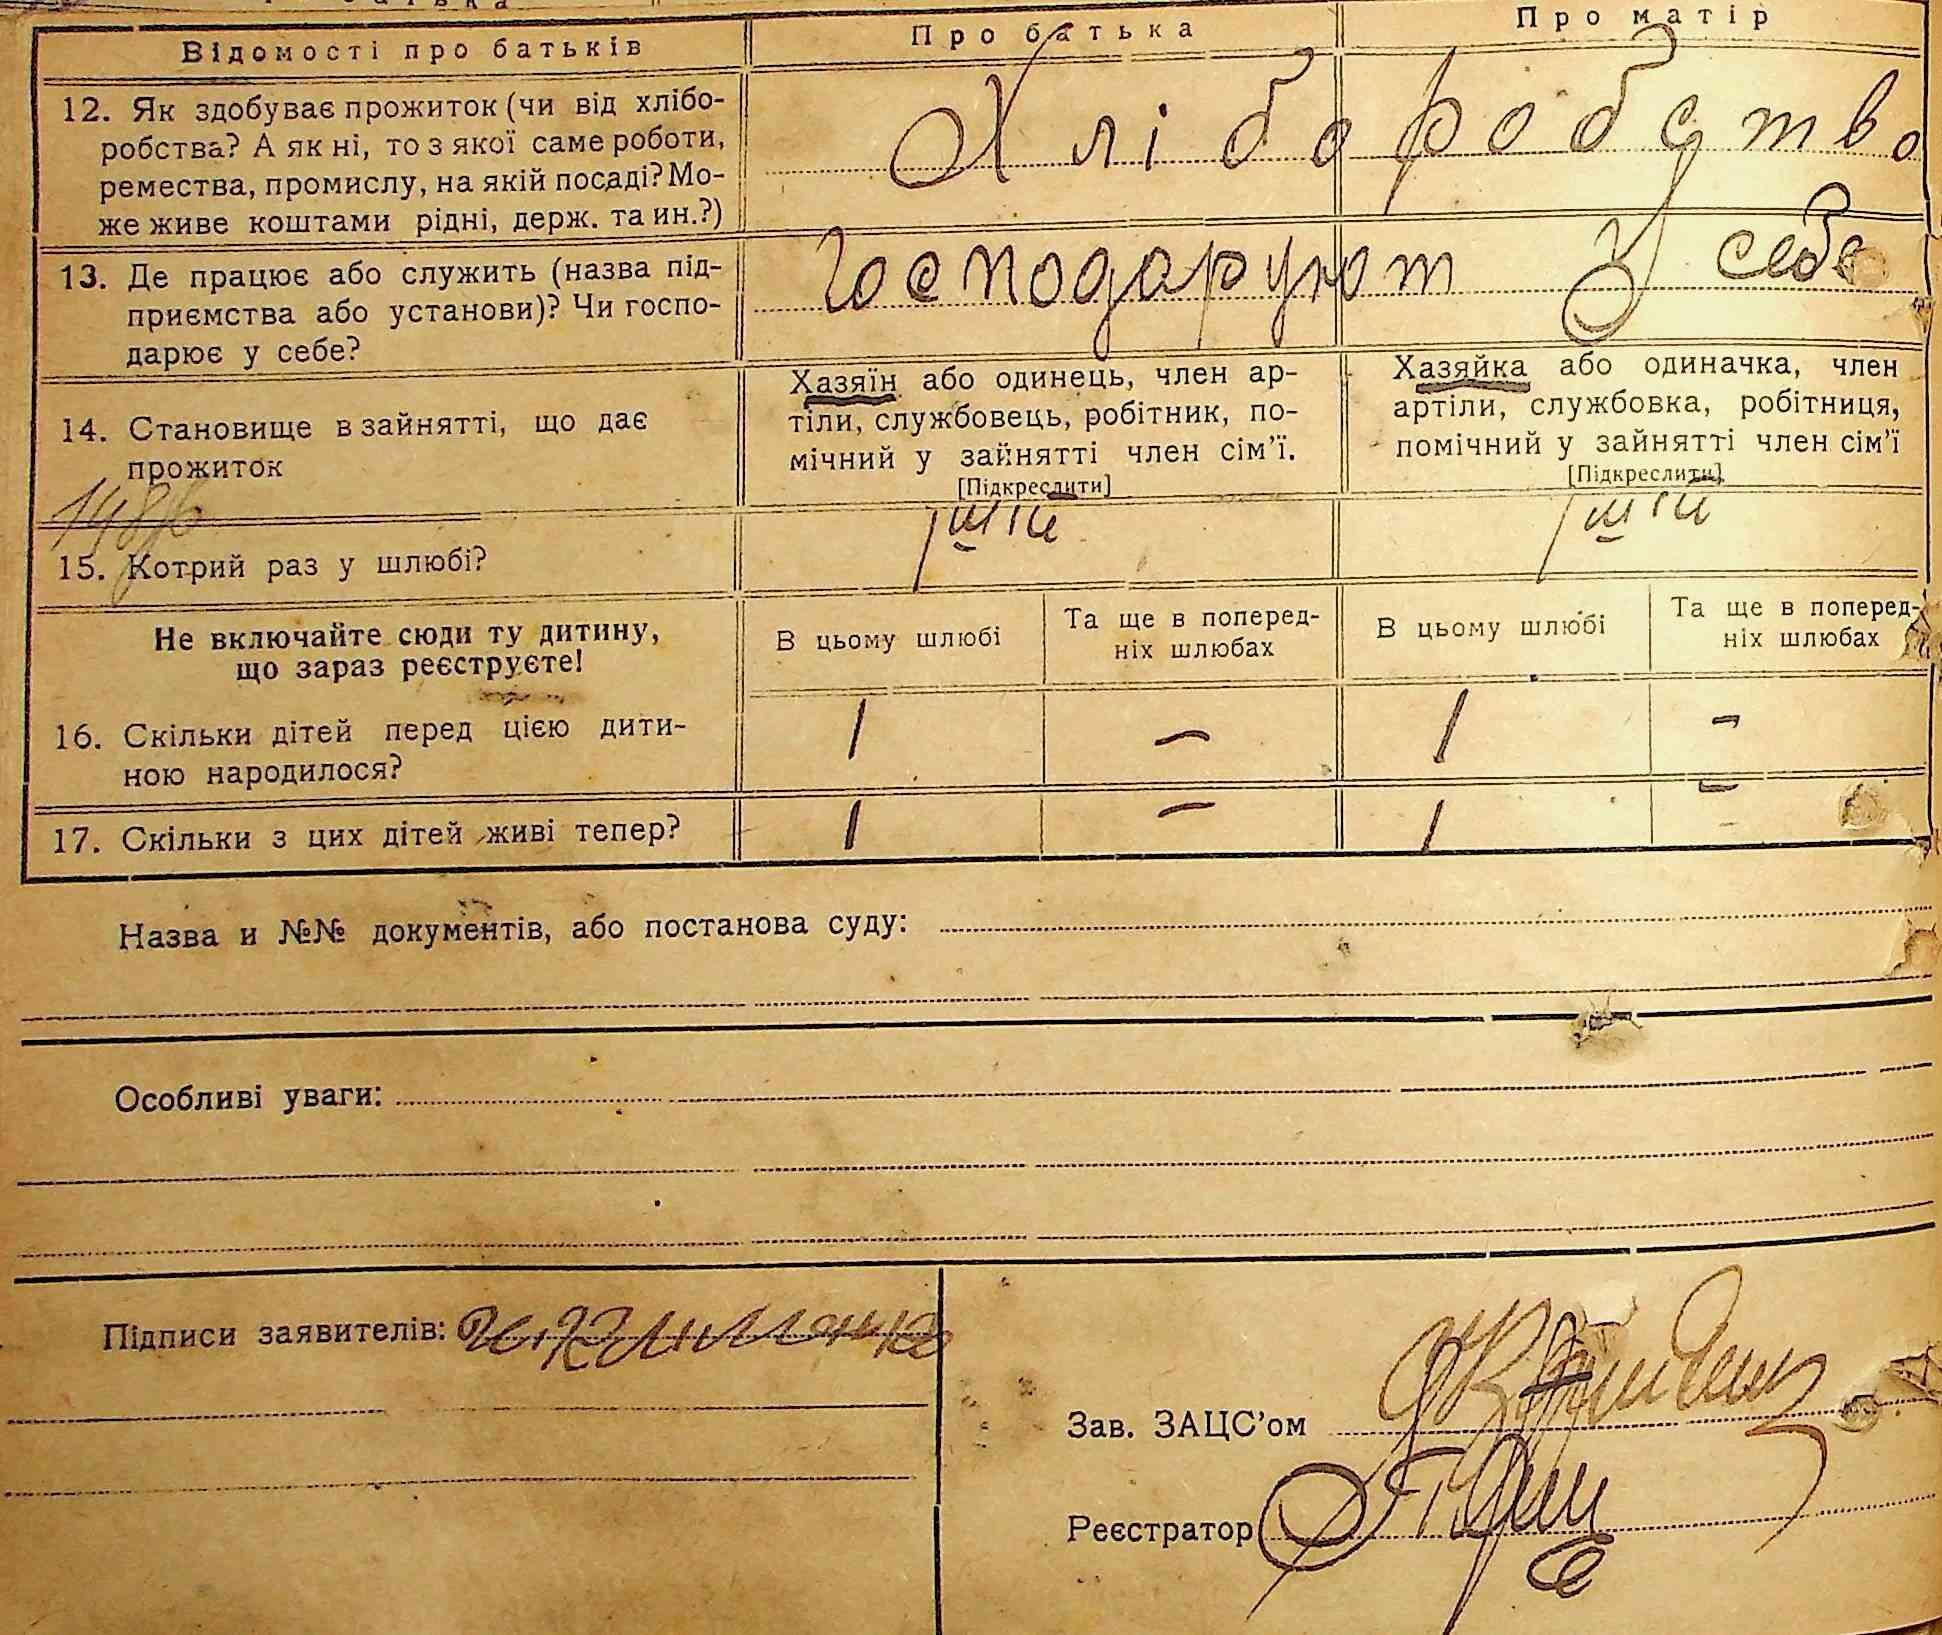 Відомості про батьків
Про батька
Про матір
12. Як здобуває прожиток (чи від хлібо-
робства? А як ні, то з якої саме роботи,
ремества, промислу, на якій посаді? Мо-
же живе коштами рідні, держ. та ин.?)
Хліборобство
13. Де працює або служить (назва під-
приємства або установи)? Чи госпо-
дарює у себе?
Господарують у себе
14. Становище в зайнятті, що дає
прожиток
Хазяїн або одинець, член ар-
тіли, службовець, робітник, по-
мічний у зайнятті член сім'ї.
[Підкреслити]
Хазяйка або одиначка, член
артіли, службовка, робітниця,
помічний у зайнятті член сім'ї
[Підкреслити]
15. Котрий раз у шлюбі?
Не включайте сюди ту дитину,
що зараз реєструєте!
В цьому шлюбі
Та ще в поперед-
ніх шлюбах
В цьому шлюбі
Та ще в поперед-
ніх шлюбах
16. Скільки дітей перед цією дити-
ною народилося?
1 – 1 –
17. Скільки з цих дітей живі тепер?
1 – 1 –
Назва и №№ документів, або постанова суду:
Особливі уваги:
Підписи заявителів:
Зав. ЗАЦС'ом
Реєстратор